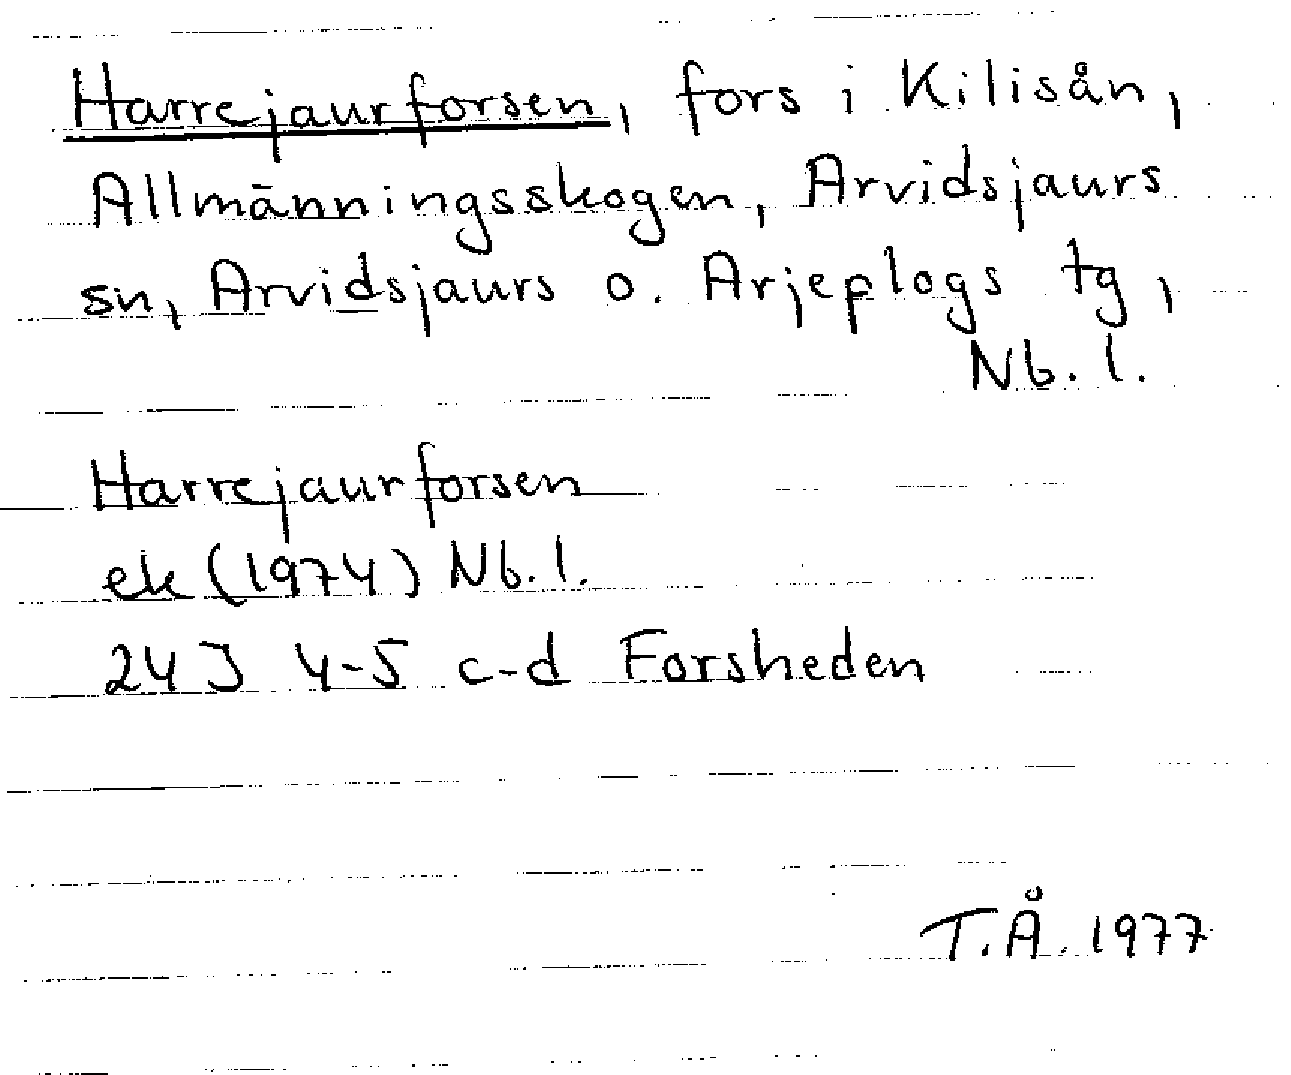 Harrejaurforsen, fors i Kilisån,
Allmänningsskogen, Arvidsjaurs
sn, Arvidsjaurs o. Arjeplogs tg,
Nb. l.
Harrejaurforsen
ek (1974) Nb. l.
24J 4-5 c-d Forsheden
T.Å. 1977